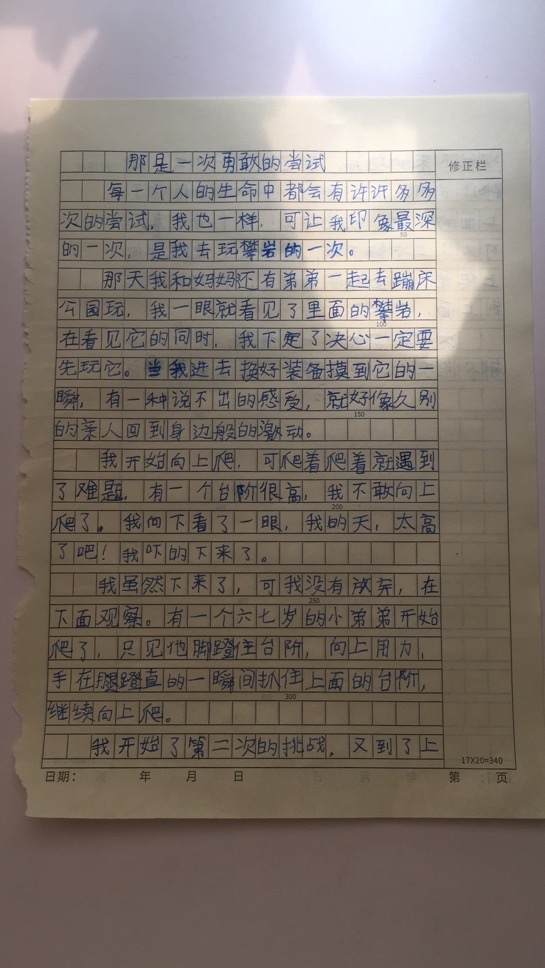 那是一次勇敢的尝试
修正栏
每一个人的生命中都会有许许多多
次的尝试，我也一样，可让我印象最深
50
的一次，是我去玩攀岩的一次。
那天我和妈妈还有弟弟一起去蹦床
公园玩，我一眼就看见了里面的攀岩，
100
在看见它的同时，我下定了决心一定要
先玩它。当我进去换好装备摸到它的一
瞬，有一种说不出的感受，就好像久别
150
的亲人回到身边般的激动。
我开始向上爬，可爬着爬着就遇到
了难题，有一个台阶很高，我不敢向上
200
爬了。我向下看了一眼，我的天，太高
了吧！我吓的下来了。
我虽然下来了，可我没有放弃，在
250
下面观察。有一个六七岁的小弟弟开始
爬了，只见他脚蹬住台阶，向上用力，
手在腿蹬直的一瞬间抓住上面的台阶，
300
继续向上爬。
我开始了第二次的挑战，又到了上
17X20=340
日期： 年 月 日 第 页